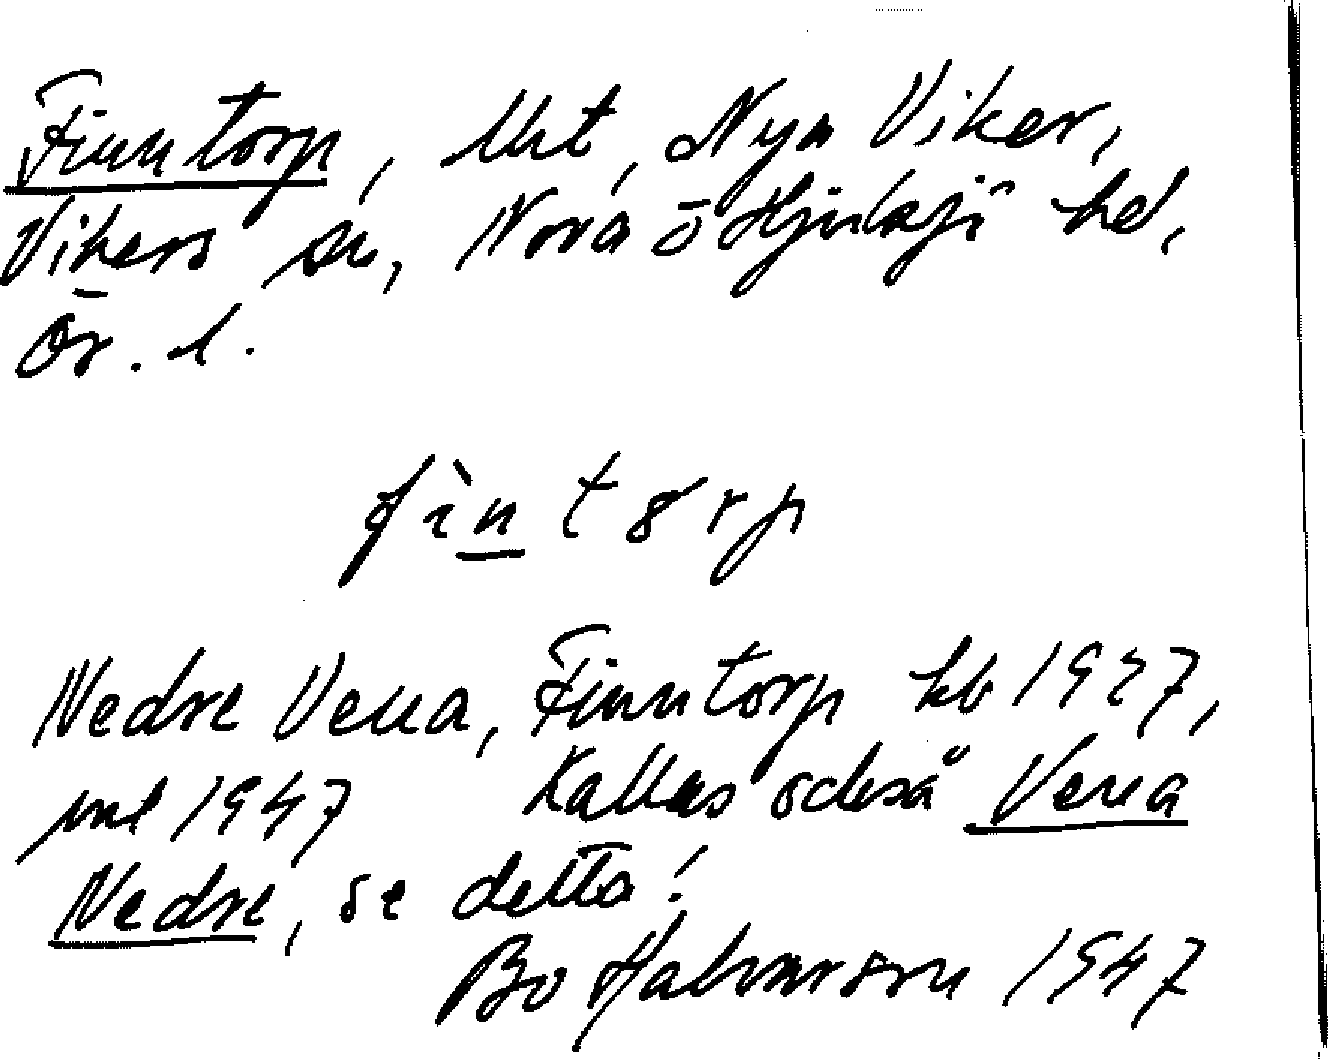 Finntorp, Uht, Nya Viker,
Vikers sn, Nora ō Hjulsjö hd,
Ör. l.
fìn t 8 r p
Nedre Vena, Finntorp kb 1927,
Kallas också Vena
Nedre, se detta!
Bo Halvarsson 1947